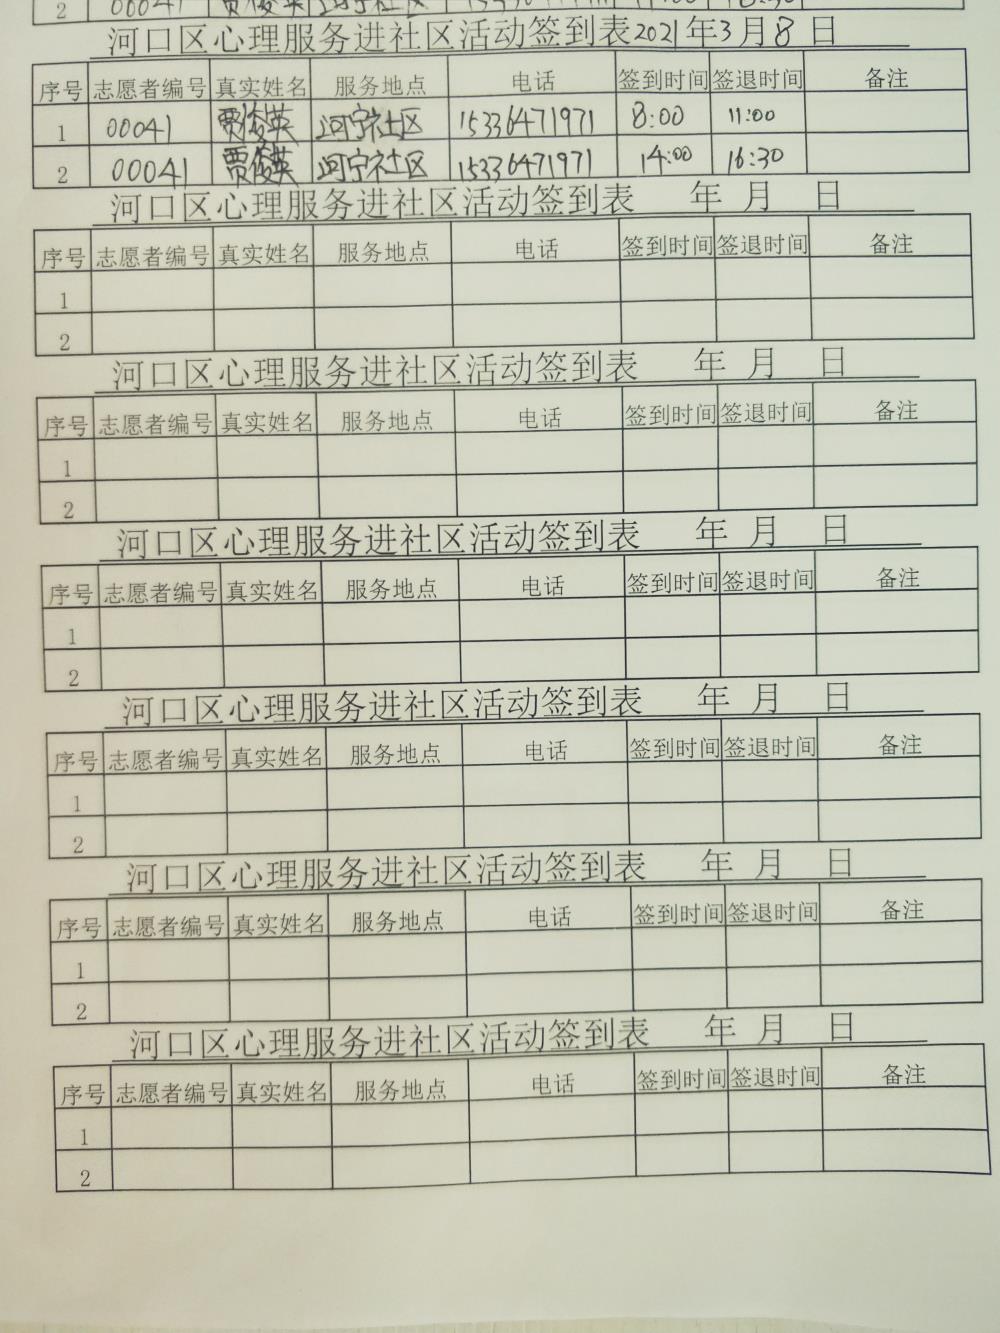 2 00041 贾俊英 河宁社区
河口区心理服务进社区活动签到表2021年3月8日
序号 志愿者编号 真实姓名 服务地点 电话 签到时间 签退时间 备注
1 00041 贾俊英 河宁社区 15336471971 8:00 11:00
2 00041 贾俊英 河宁社区 15336471971 14:00 16:30
河口区心理服务进社区活动签到表 年 月 日
序号 志愿者编号 真实姓名 服务地点 电话 签到时间 签退时间 备注
1
2
河口区心理服务进社区活动签到表 年 月 日
序号 志愿者编号 真实姓名 服务地点 电话 签到时间 签退时间 备注
1
2
河口区心理服务进社区活动签到表 年 月 日
序号 志愿者编号 真实姓名 服务地点 电话 签到时间 签退时间 备注
1
2
河口区心理服务进社区活动签到表 年 月 日
序号 志愿者编号 真实姓名 服务地点 电话 签到时间 签退时间 备注
1
2
河口区心理服务进社区活动签到表 年 月 日
序号 志愿者编号 真实姓名 服务地点 电话 签到时间 签退时间 备注
1
2
河口区心理服务进社区活动签到表 年 月 日
序号 志愿者编号 真实姓名 服务地点 电话 签到时间 签退时间 备注
1
2